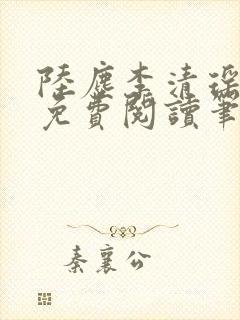 陸塵李清瑤
免費閱讀筆
秦襄公